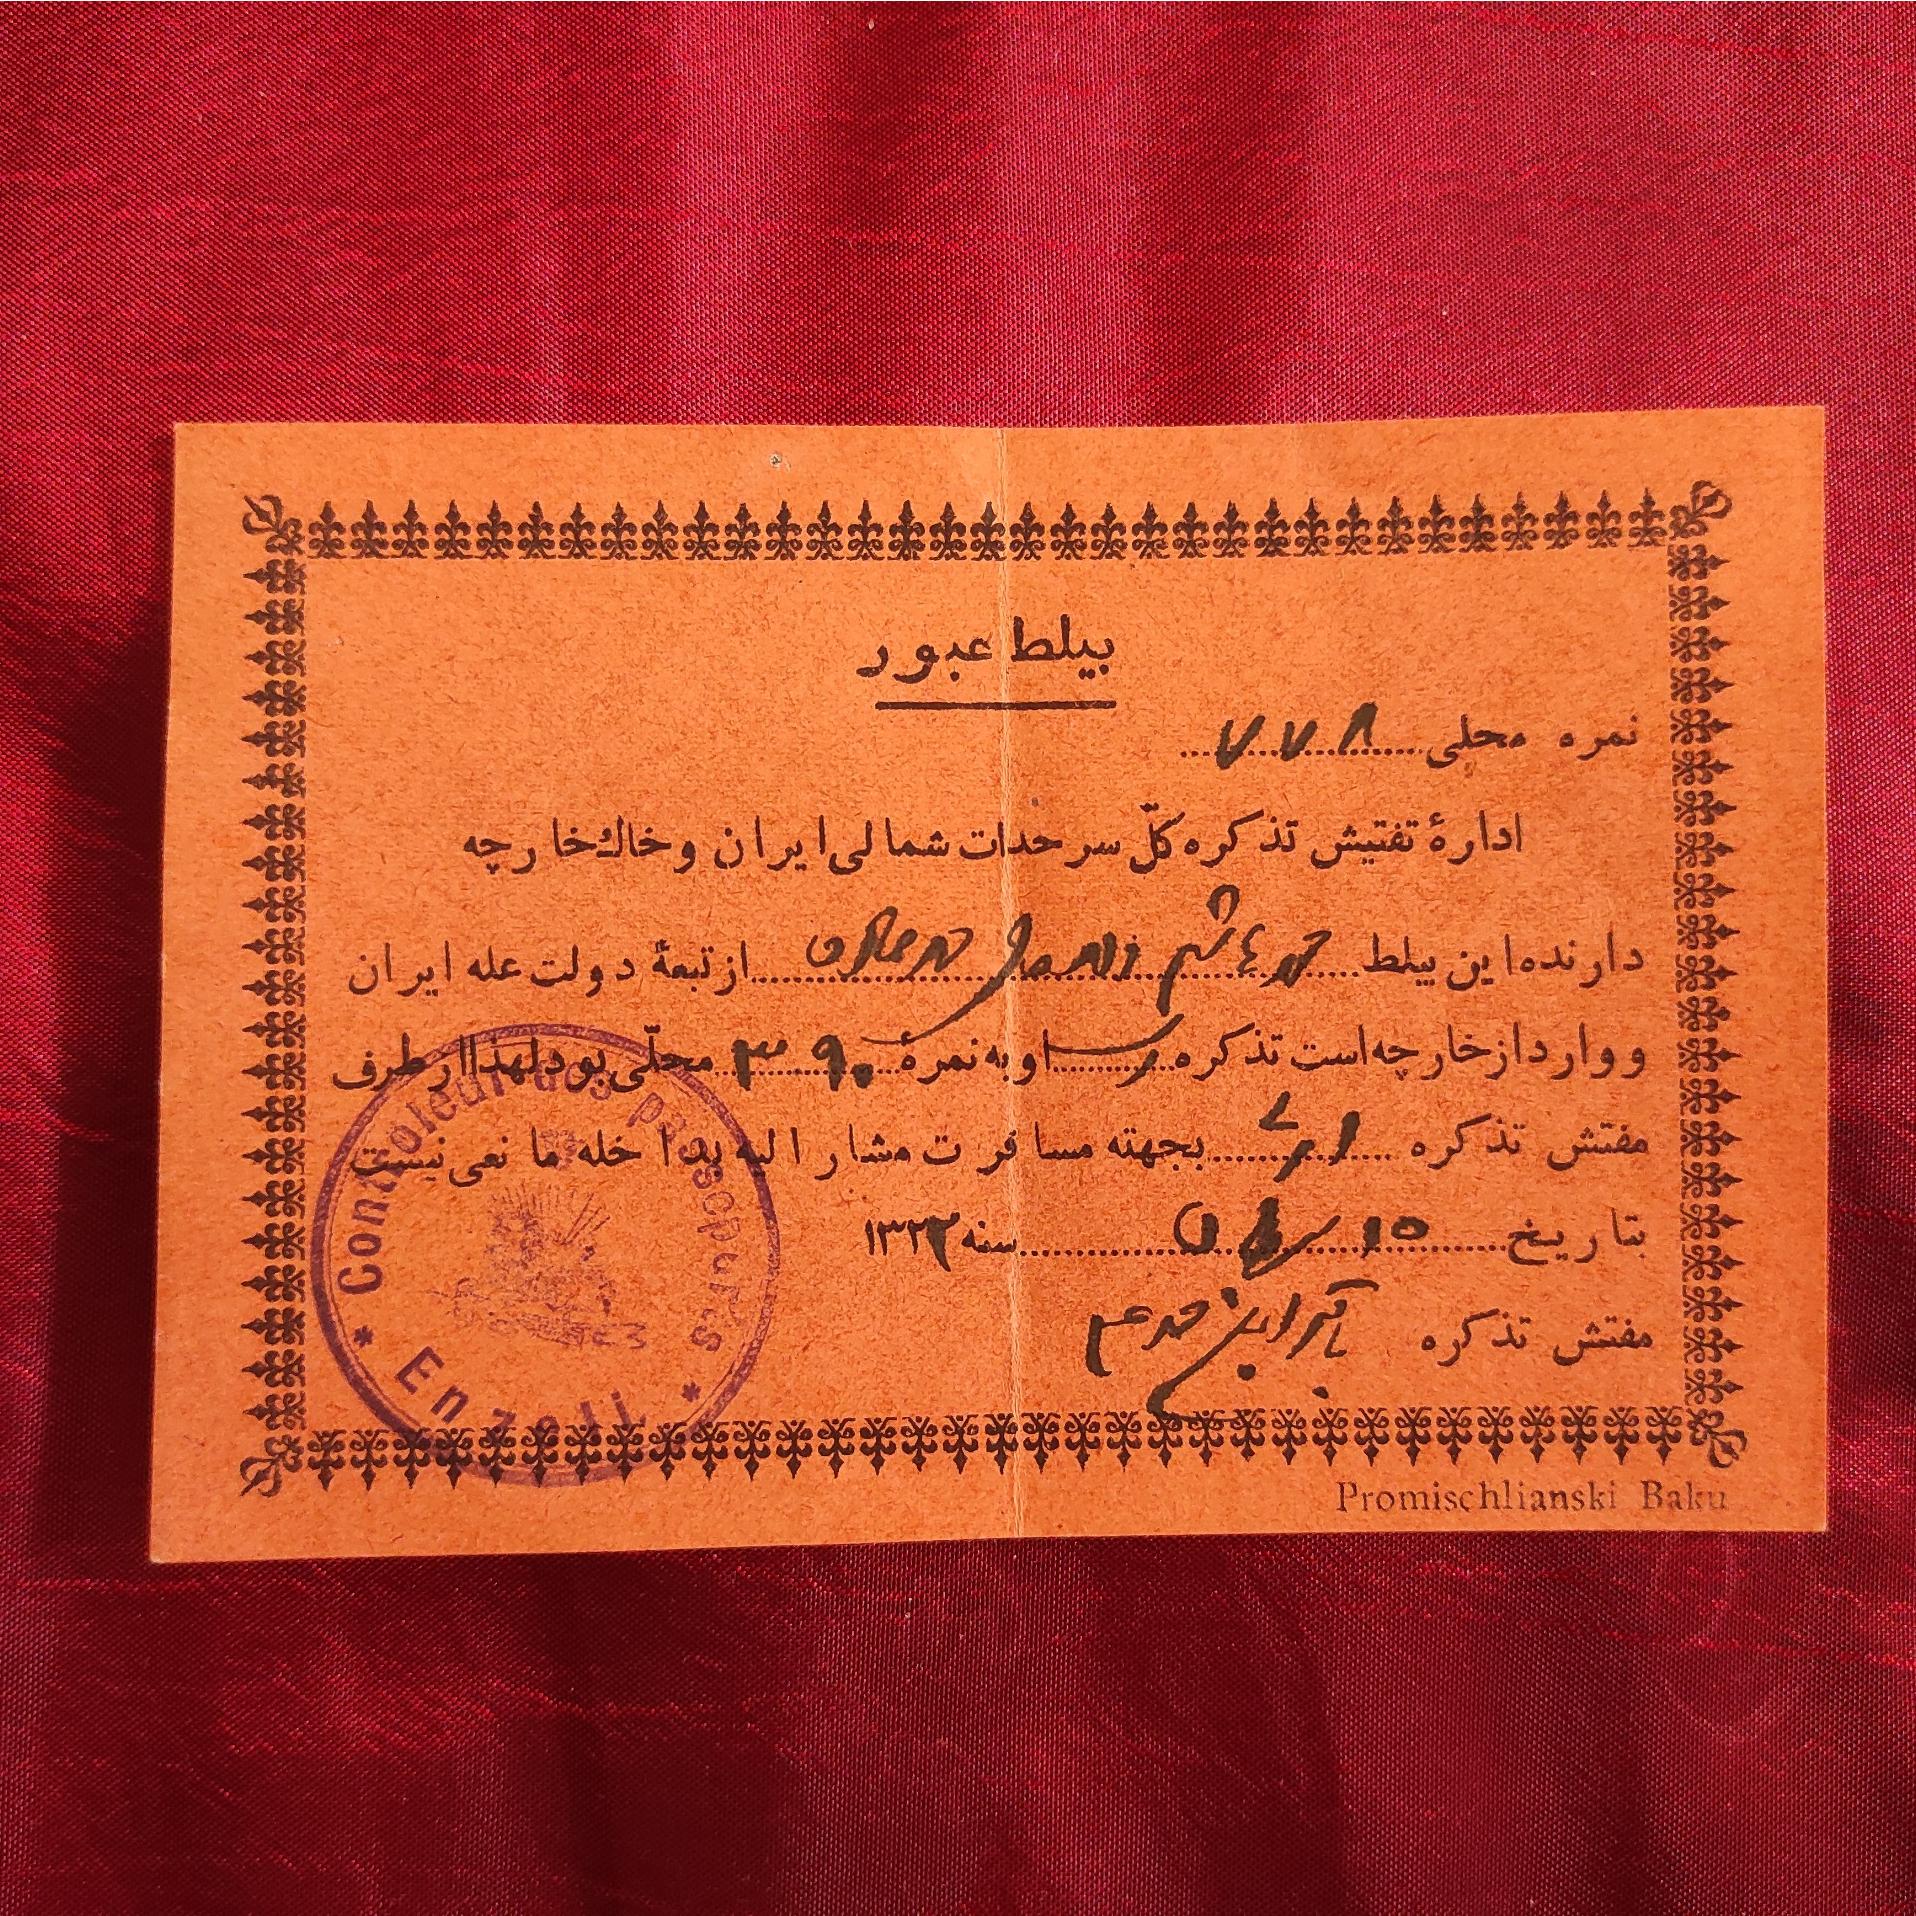 بیلط عبور
نمره محلی ۷۷۸
ادارهٔ تفتیش تذکره کلّ سرحدات شمالی ایران و خاك خارجه
دارنده این بیلط از تبعهٔ دولت عله ایران
و وارد از خارجه است تذکره او به نمرهٔ ۳۹۰ محلّی بود لهذا از طرف
مفتش تذکره بجهته مسافرت مشارالیه بداخله مانعی نیست
بتاریخ ۱۵ سنه ۱۳۳۳
مفتش تذکره
Controleur des passeports
Enzeli
Promischlianski Baku